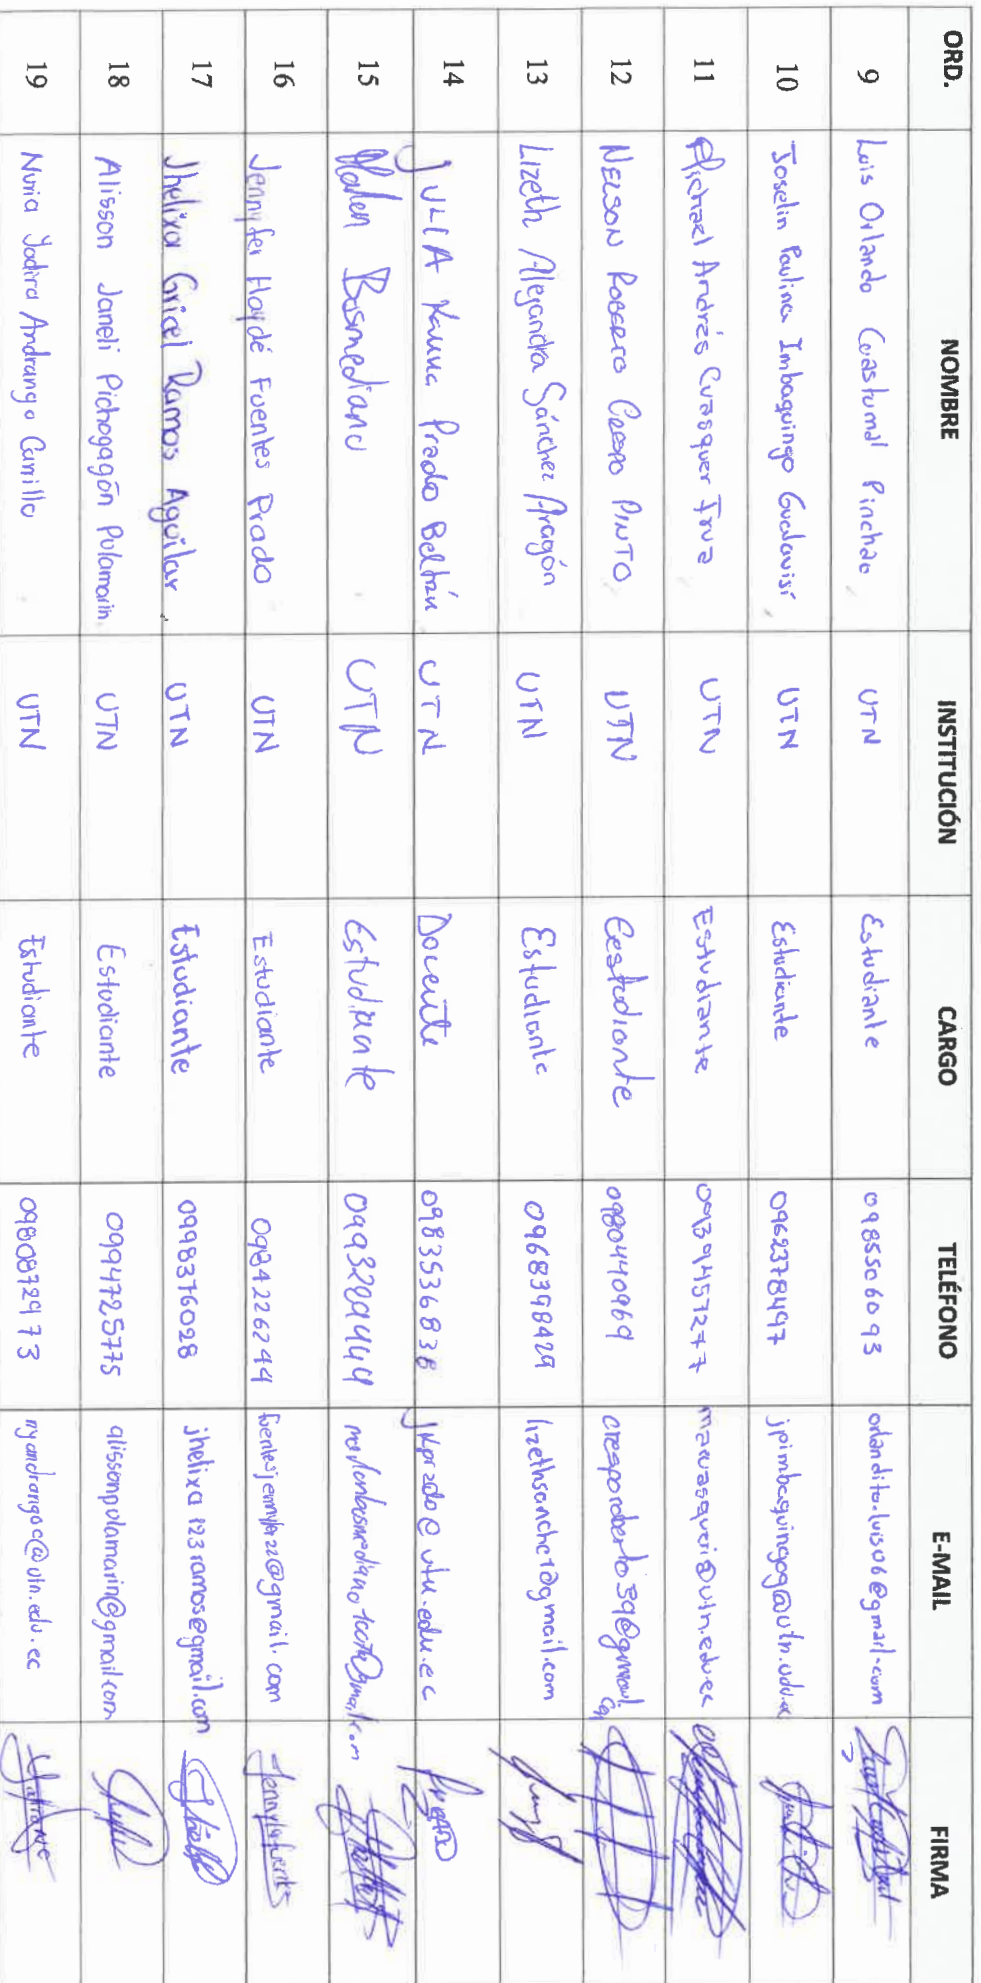 ORD. NOMBRE INSTITUCIÓN CARGO TELÉFONO E-MAIL FIRMA
9 Luis Orlando Cuastumal Pinchao UTN Estudiante 0985506093 orlandito.luis06@gmail.com
10 Joselin Paulina Imbaquingo Gualavisí UTN Estudiante 0962378497 jpimbaquingog@utn.edu.ec
11 Michael Andrés Cuasquer Irua UTN Estudiante macuasqueri@utn.edu.ec
12 NELSON ROBERTO CRESPO PINTO UTN Eestudiante 0980440969 cresporoberto59@gmail.com
13 Lizeth Alejandra Sánchez Aragón UTN Estudiante 0968398429 lizethsanchez1@gmail.com
14 JULIA Karina Prado Beltrán UTN Docente 0983536838 jkprado@utn.edu.ec
15 Basmediano UTN Estudiante 0993229444
16 Jennyfer Haydé Fuentes Prado UTN Estudiante 0984226244 fuentesjennyfer22@gmail.com
17 Jhelixa Gricel Ramos Aguilar UTN Estudiante 0998376028 jhelixa123ramos@gmail.com
18 Alisson Janeli Pichogagón Pulamarin UTN Estudiante 0994725775 alissonpulamarin@gmail.com
19 Nuria Yadira Andrango Carrillo UTN Estudiante 0980872973 nyandrangoc@utn.edu.ec